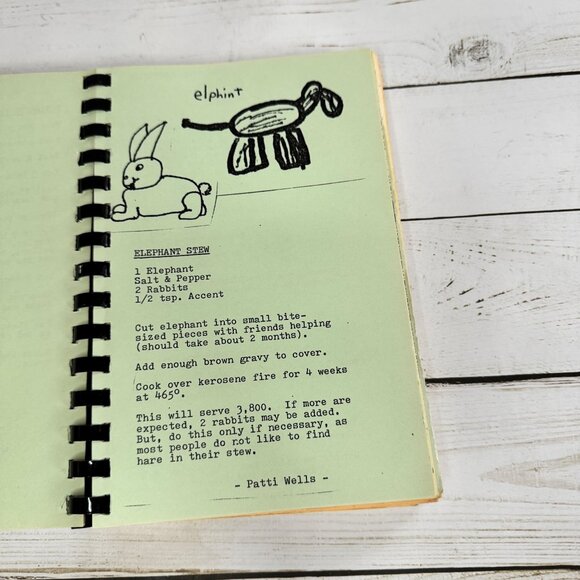 elphint
ELEPHANT STEW
1 Elephant
Salt & Pepper
2 Rabbits
1/2 tsp. Accent
Cut elephant into small bite-
sized pieces with friends helping
(should take about 2 months).
Add enough brown gravy to cover.
Cook over kerosene fire for 4 weeks
at 465º.
This will serve 3,800. If more are
expected, 2 rabbits may be added.
But, do this only if necessary, as
most people do not like to find
hare in their stew.
- Patti Wells -